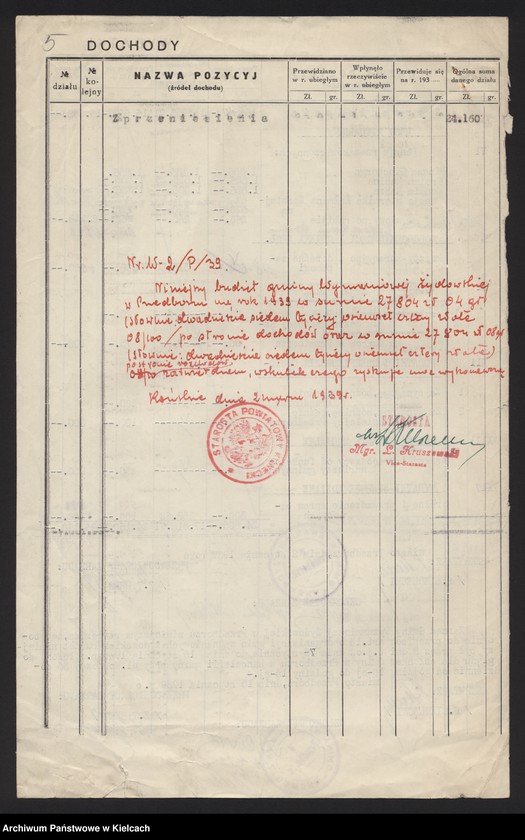 5 DOCHODY
№ działu
№ ko-lejny
NAZWA POZYCYJ
(źródeł dochodu)
Przewidziano w r. ubiegłym
Wpłynęło rzeczywiście w r. ubiegłym
Przewiduje się na r. 193
Ogólna suma danego działu
Zł. gr. Zł. gr. Zł. gr. Zł. gr.
Z przeniesienia 24.160
Nr. W-2/P/39
Niniejszy budżet gminy Wyznaniowej Żydowskiej
w Przedborzu na rok 1939 w sumie 27804 zł 04 gr
(słownie dwadzieścia siedem tysięcy osiemset cztery złote
08/100/ po stronie dochodów oraz w sumie 27804 zł 08 gr
(słownie: dwadzieścia siedem tysięcy osiemset cztery złote)
po stronie rozchodów
zatwierdzam, wskutek czego zyskuje moc wykonawczą
Końskie dnia 2 marca 1939 r.
STAROSTA POWIATOWY KONECKI
STAROSTA
Mgr. L. Kruszewski
Vice-Starosta
Archiwum Państwowe w Kielcach